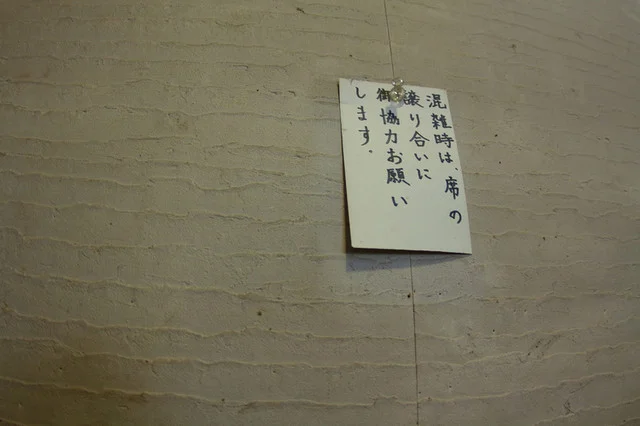 混雑時は、席の
譲り合いに
御協力お願い
します.